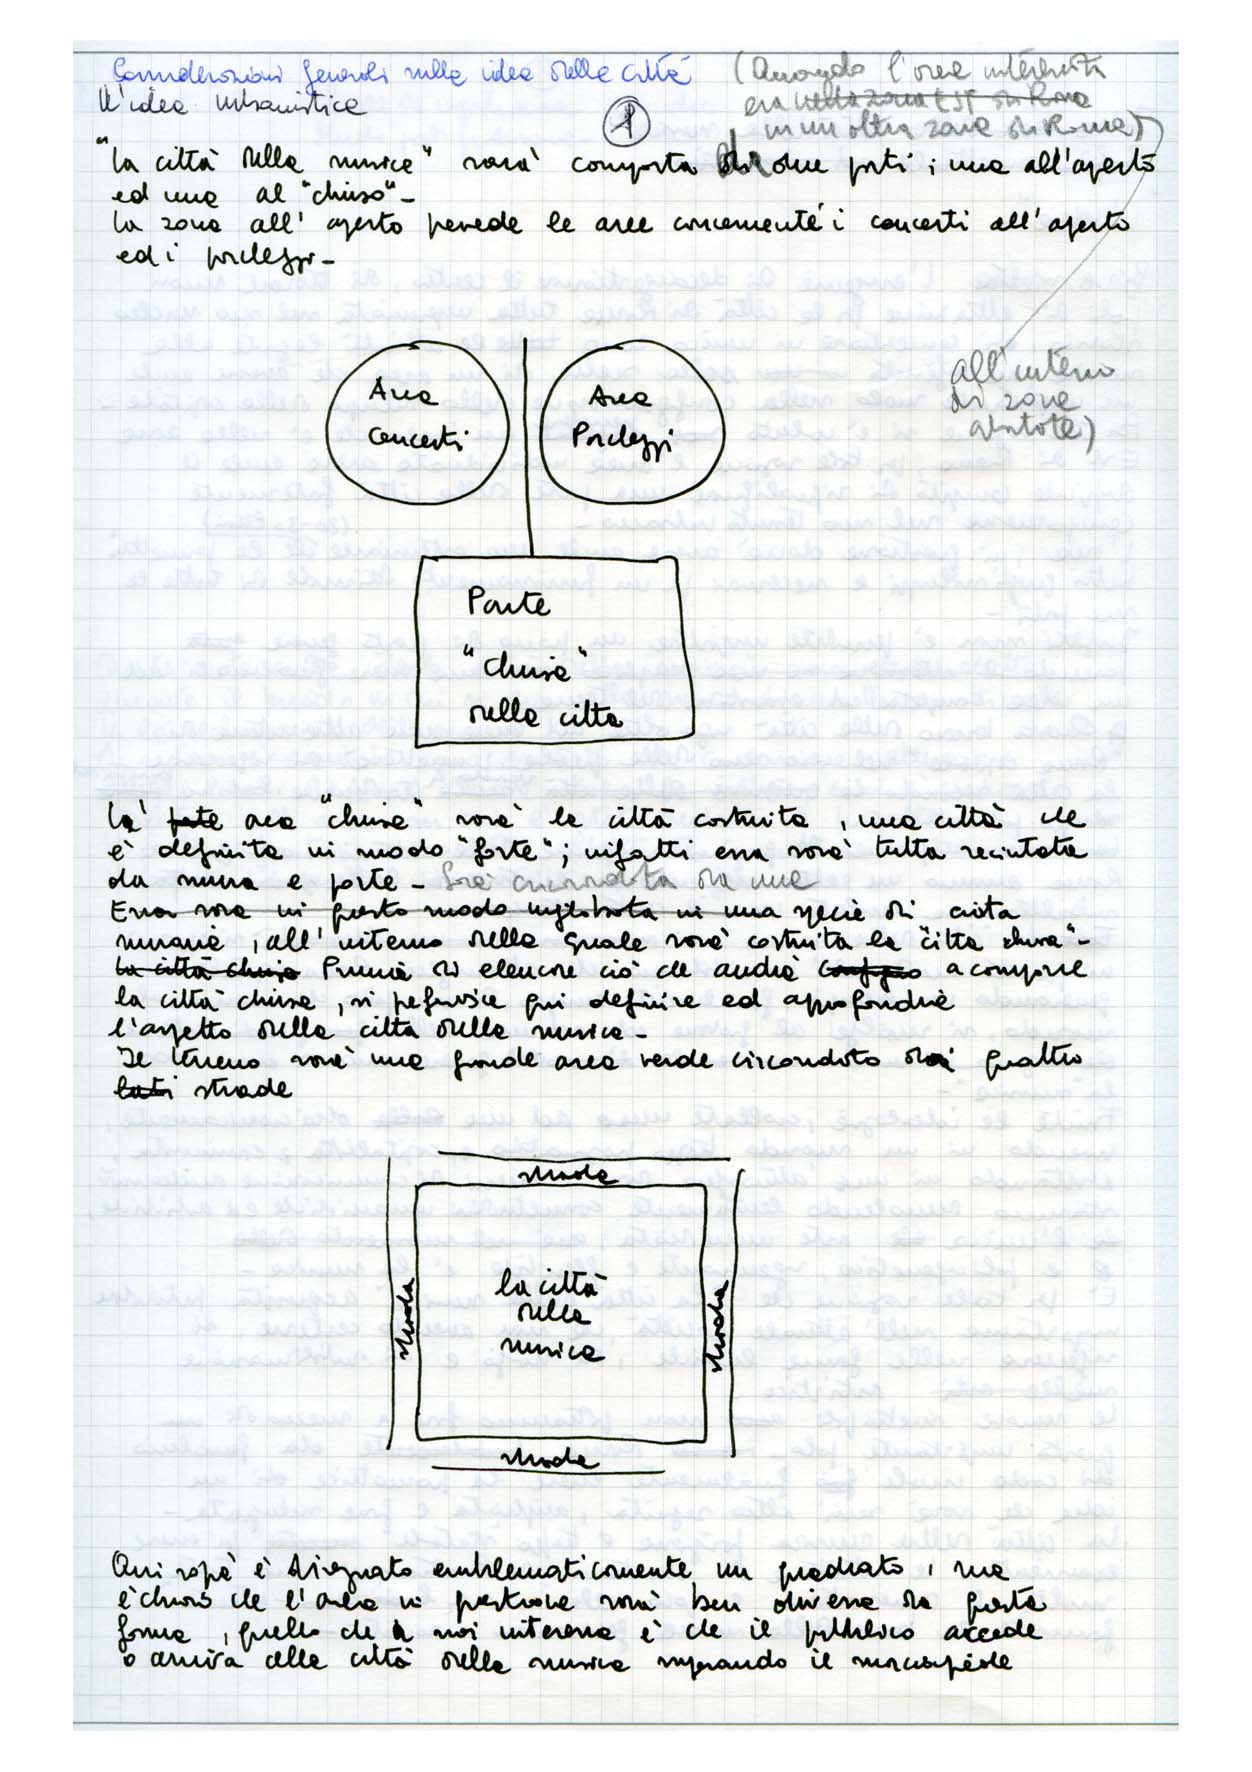 Considerazioni generali sulla idea della città
(Quando l'area interessata
L'idea urbanistica
era nella zona EST di Roma
1
in un'altra zona di Roma)
"la città della musica" sarà composta di due parti; una all'aperto
ed una al "chiuso"-
la zona all'aperto prevede le aree concernente i concerti all'aperto
ed i parcheggi-
all'interno
di zone
abitate)
Area
Concerti
Area
Parcheggi
Parte
"chiusa"
della città
La parte area "chiusa" sarà la città costruita, una città che
è definita in modo "forte"; infatti essa sarà tutta recintata
da mura e porte - Sarà circondata da una
Essa sarà in questo modo inglobata in una specie di cinta
muraria, all'interno della quale sarà costruita la "città chiusa"-
la città chiusa Prima di elencare ciò che andrà a comporre
la città chiusa, si preferisce qui definire ed approfondire
l'aspetto della città della musica-
Il terreno sarà una grande area verde circondato da quattro
lati strade
strada
strada
la città
della
musica
strada
strada
Qui sopra è disegnato emblematicamente un quadrato, ma
è chiaro che l'area in questione sarà ben diversa da questa
forma, quello che a noi interessa è che il pubblico accede
o arriva alla città della musica superando il marciapiede